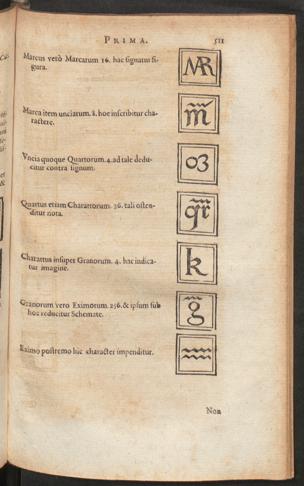 PRIMA.
Marcus verò Marcarum 16. hac signatur fi-
gura.
MR
Marca item unciarum. 8. hoc inscribitur cha-
ractere.
m
Vncia quoque Quartorum. 4. ad tale dedu-
citur contra signum.
Quartus etiam Charattorum. 36. tali osten-
ditur nota.
qr
Charattus insuper Granorum. 4. hac indica-
tur imagine.
k
Granorum vero Eximorum. 256. & ipsum sub
hoc reducitur Schemate.
g
Eximo postremo hic character impenditur.
Non